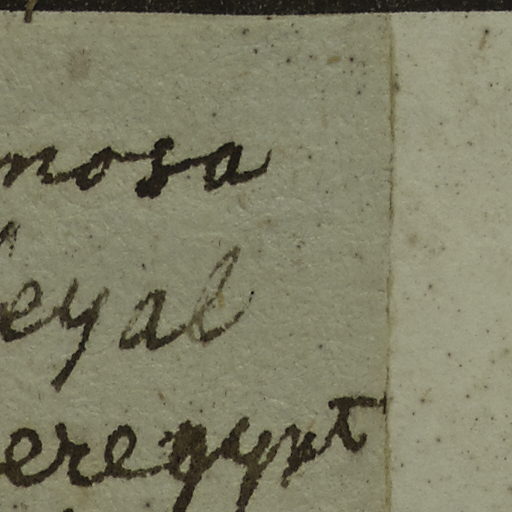 nosa
leyal
eregynt